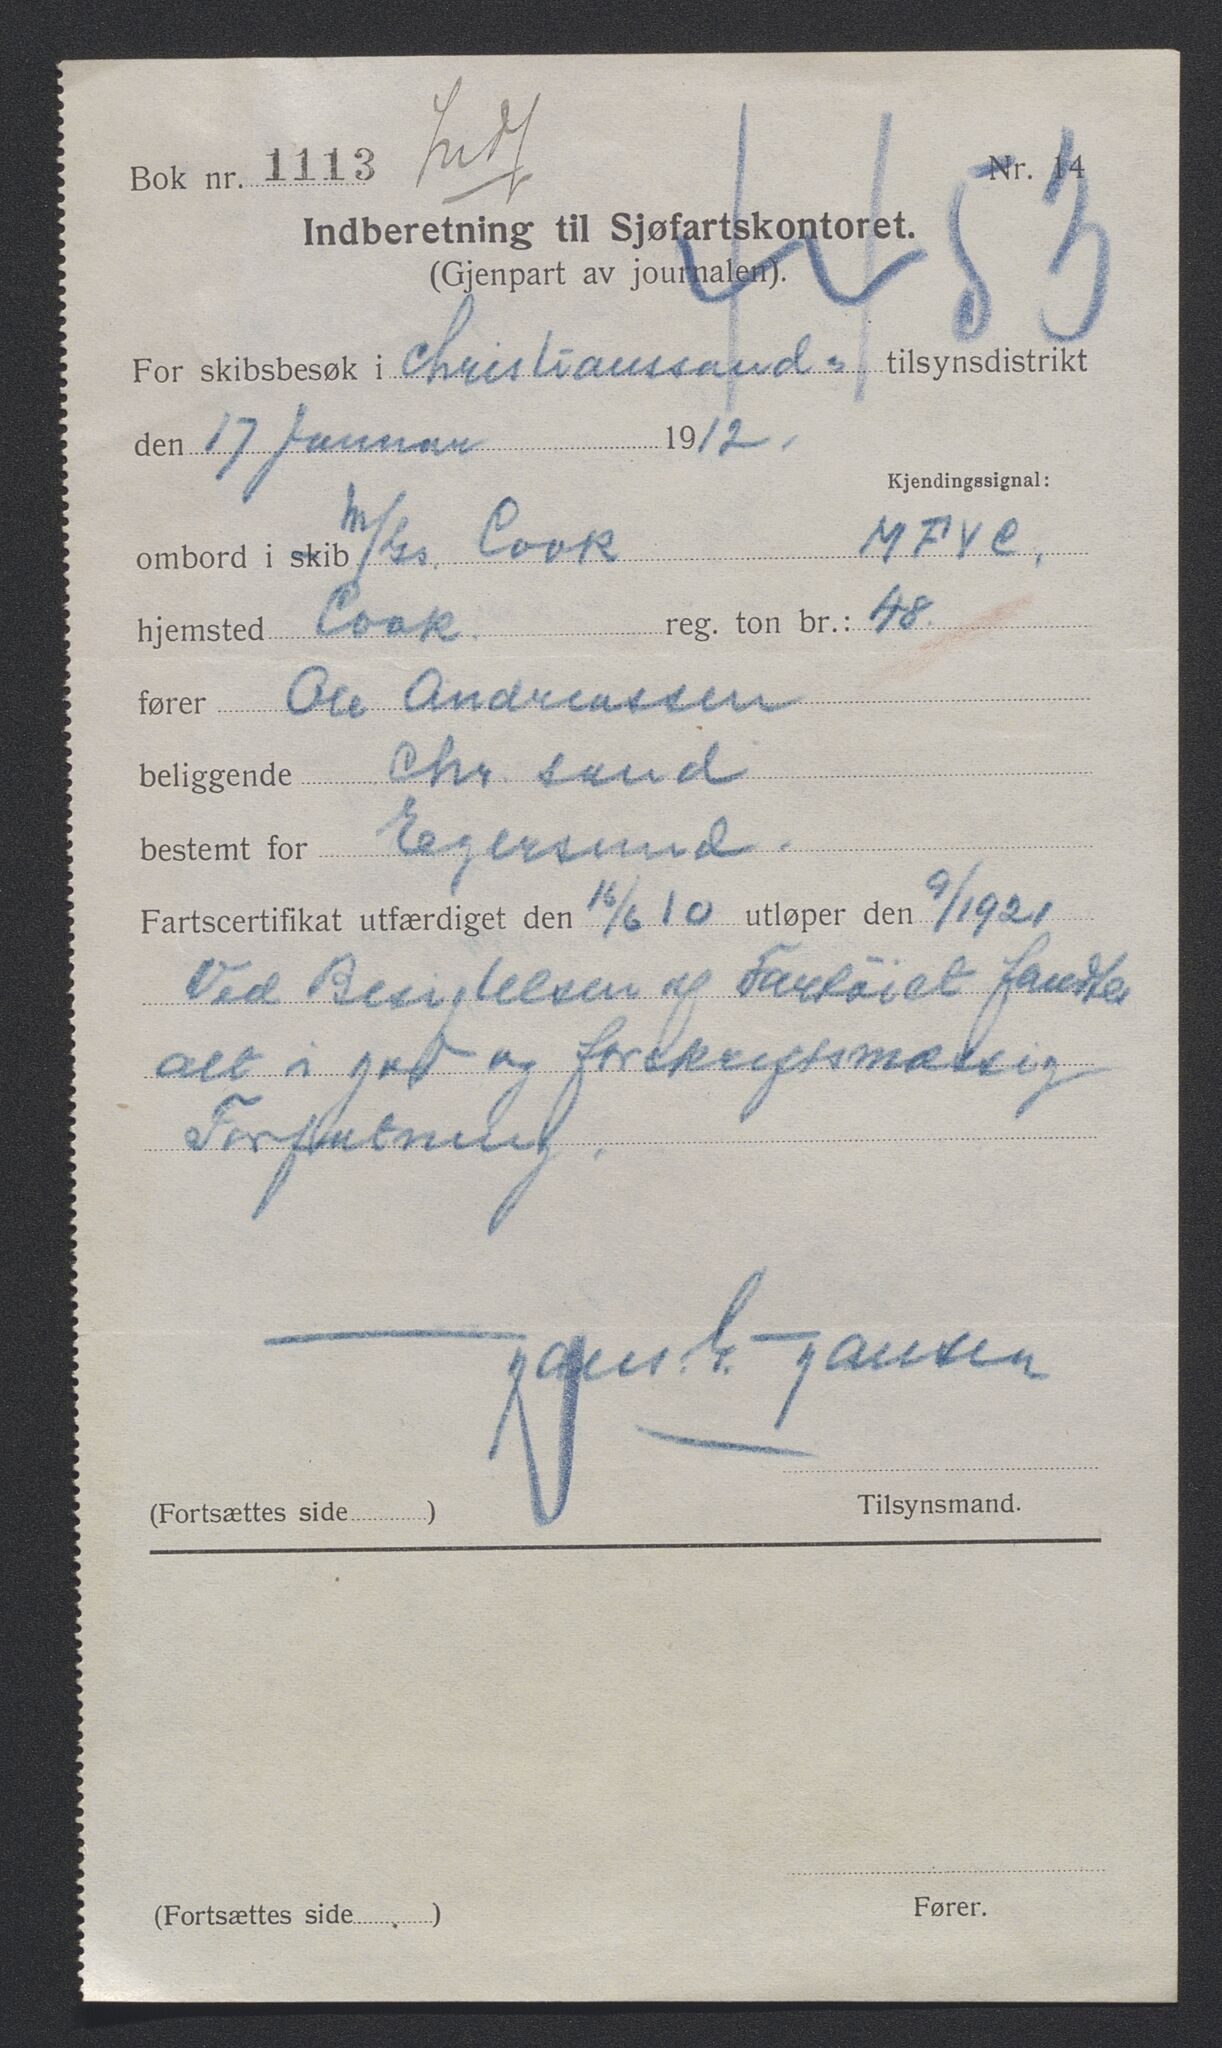 Bok nr. 1113
Nr. 14
4453
Indberetning til Sjøfartskontoret.
(Gjenpart av journalen).
For skibsbesøk i Christianssand s tilsynsdistrikt
den 17 Januar 1912.
Kjendingssignal:
ombord i skib M/ Cook MFVC.
hjemsted Cook. reg. ton br.: 48.
fører Ole Andreassen
beliggende Chr. sand
bestemt for Egersund.
Fartscertifikat utfærdiget den 16/6 10 utløper den 9/1921
Ved Besigtelsen af Fartöiet fandtes
alt i god og forskriftsmæssig
Forfatning.
Hans E. Hansen
(Fortsættes side ) Tilsynsmand.
Fører.
(Fortsættes side )